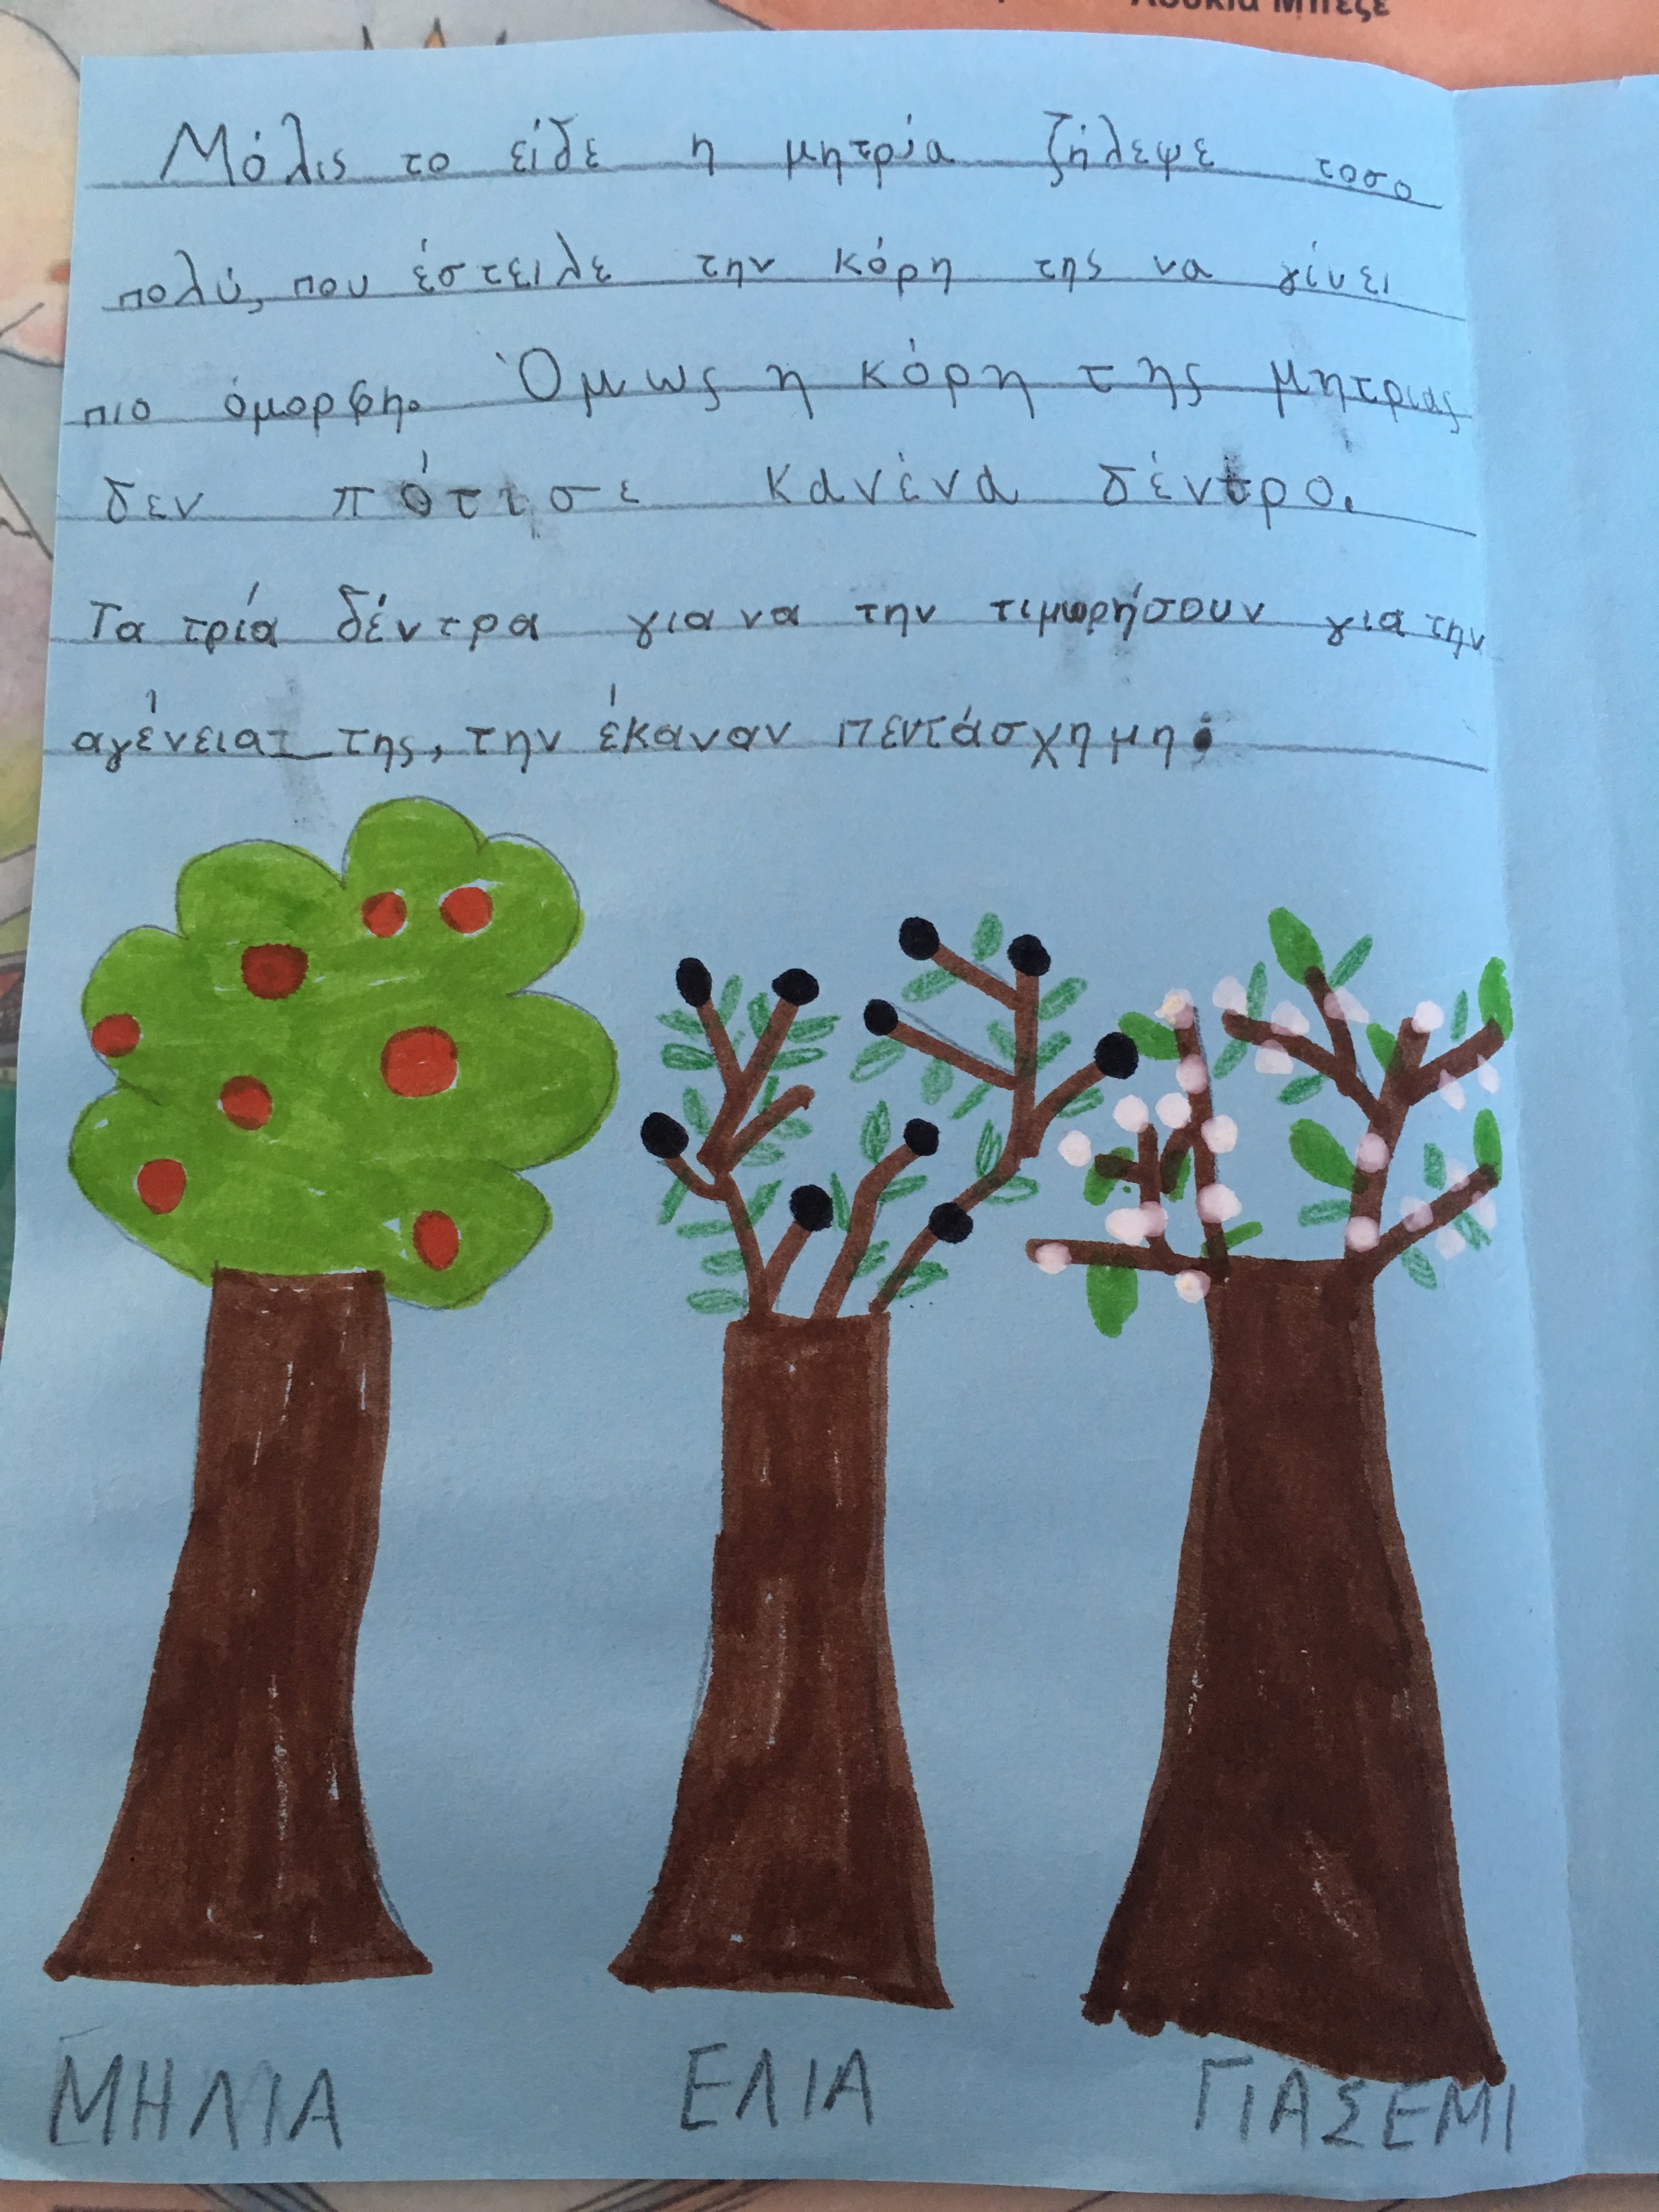 Μόλις το είδε η μητριά ζήλεψε τοσο
πολύ, που έστειλε την κόρη της να γίνει
πιο όμορφη. Όμως η κόρη της μητριας
δεν πότισε κανένα δέντρο.
Τα τρία δέντρα για να την τιμωρήσουν για την
αγένεια της, την έκαναν πεντάσχημη.
ΜΗΛΙΑ ΕΛΙΑ ΓΙΑΣΕΜΙ